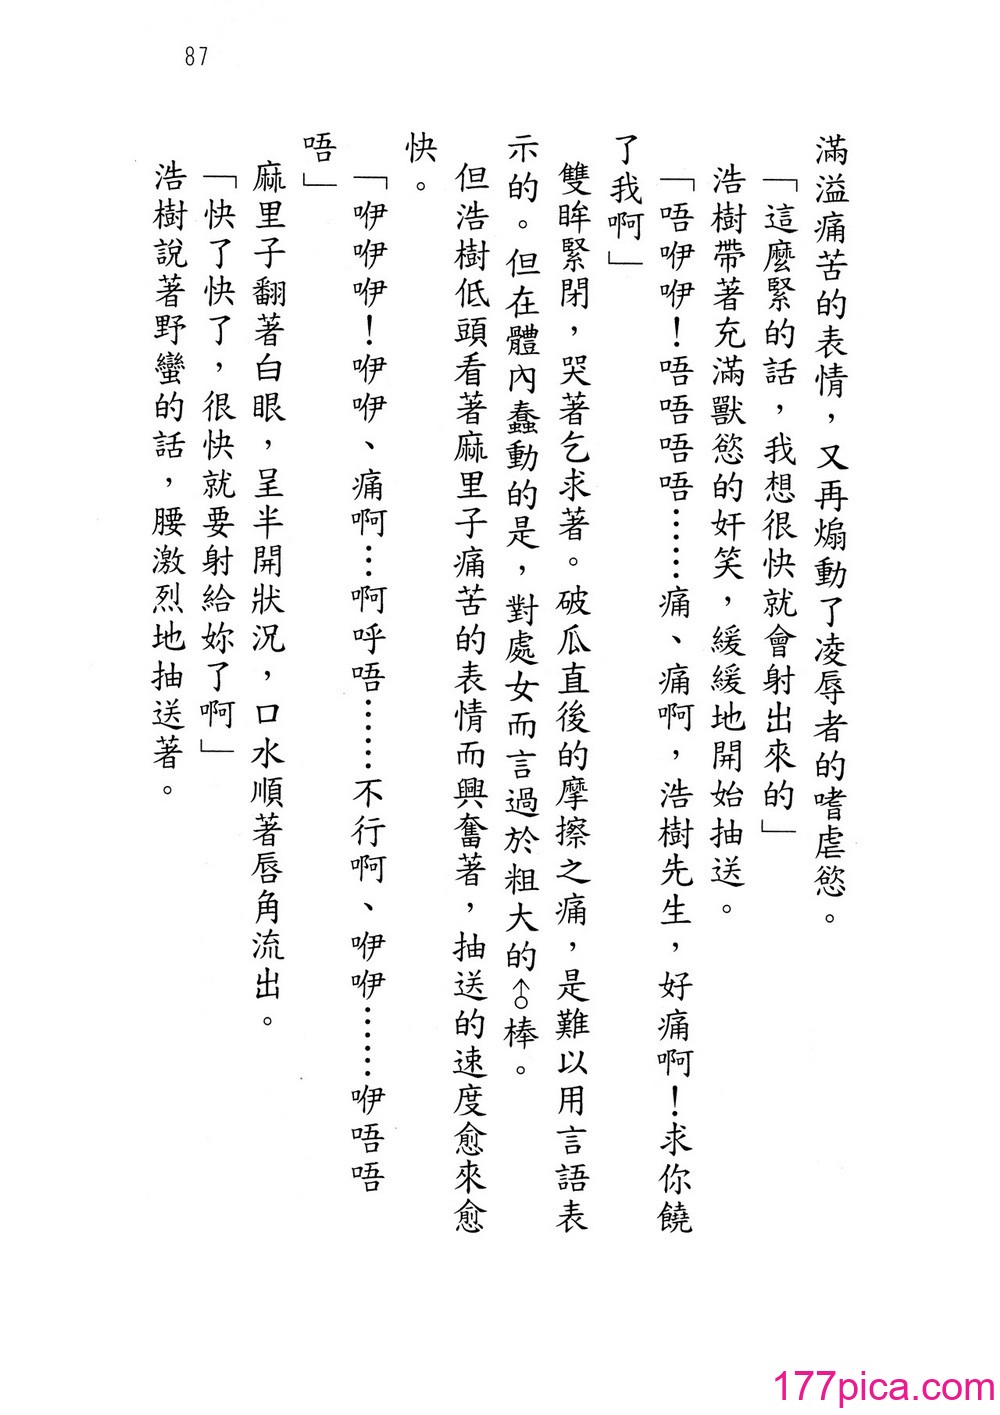 87
滿溢痛苦的表情，又再煽動了凌辱者的嗜虐慾。
「這麼緊的話，我想很快就會射出來的」
浩樹帶著充滿獸慾的奸笑，緩緩地開始抽送。
「唔咿咿！唔唔唔唔……痛、痛啊，浩樹先生，好痛啊！求你饒
了我啊」
雙眸緊閉，哭著乞求著。破瓜直後的摩擦之痛，是難以用言語表
示的。但在體內蠢動的是，對處女而言過於粗大的♂棒。
但浩樹低頭看著麻里子痛苦的表情而興奮著，抽送的速度愈來愈
快。
「咿咿咿！咿咿、痛啊…啊呼唔……不行啊、咿咿……咿唔唔
唔」
麻里子翻著白眼，呈半開狀況，口水順著唇角流出。
「快了快了，很快就要射給妳了啊」
浩樹說著野蠻的話，腰激烈地抽送著。
177pica.com